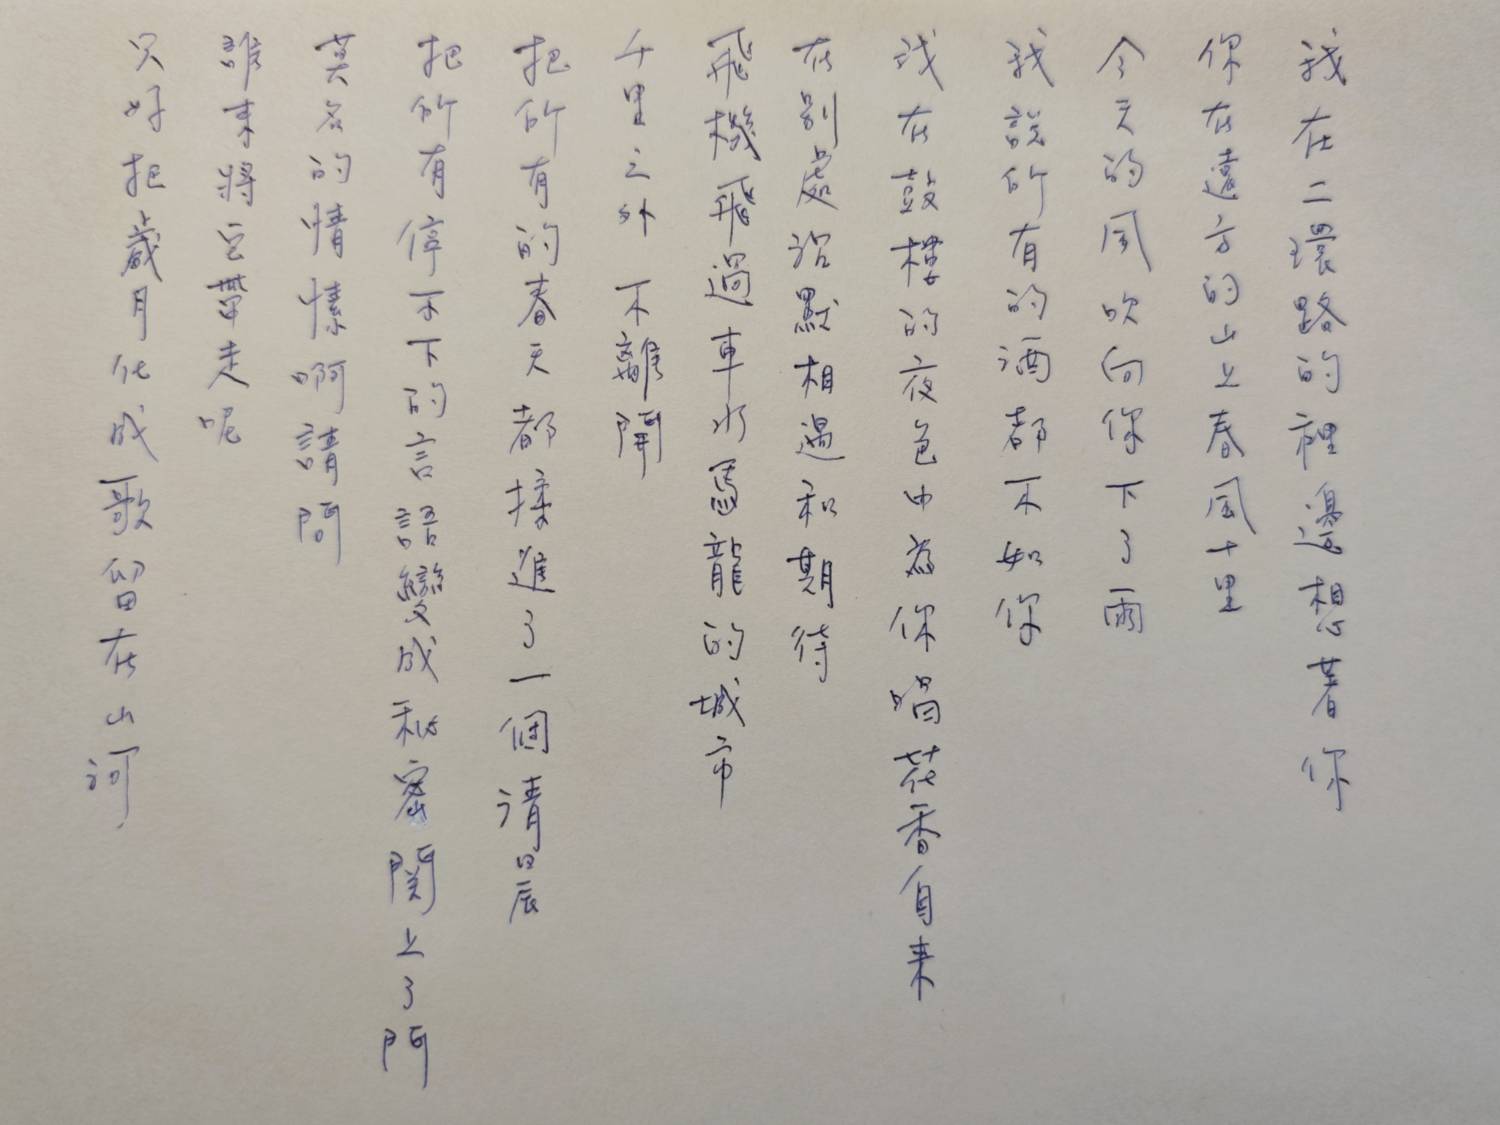 我在二環路的裡邊想著你
你在遠方的山上春風十里
今天的風吹向你下了雨
我說所有的酒都不如你
我在鼓樓的夜色中為你唱花香自來
在別處沉默相遇和期待
飛機飛過車水馬龍的城市
千里之外 不離開
把所有的春天都揉進了一個清晨
把所有停不下的言語變成秘密關上了門
莫名的情愫啊請問
誰來將它帶走呢
只好把歲月化成歌留在山河